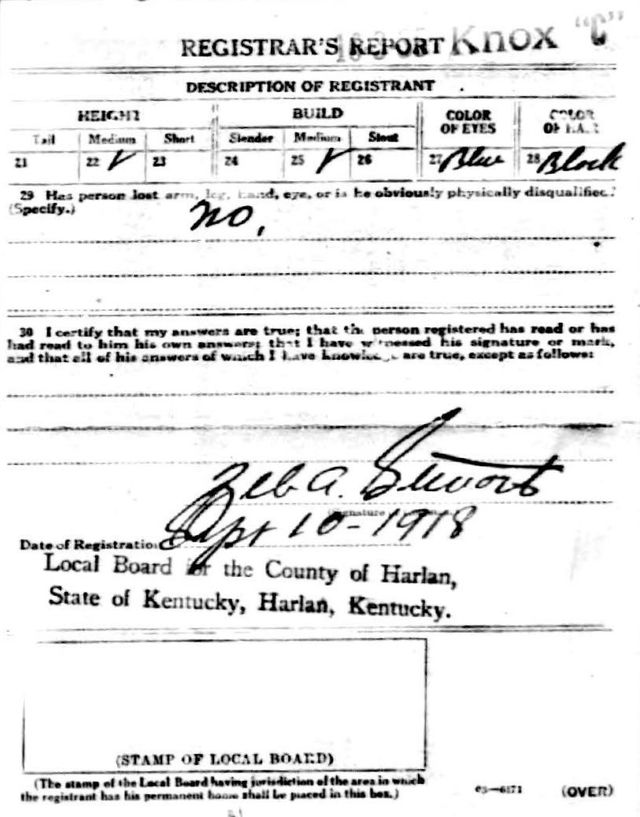 REGISTRAR'S REPORT Knox "C"
DESCRIPTION OF REGISTRANT
HEIGHT BUILD COLOR OF EYES COLOR OF HAIR
Tall Medium Short Slender Medium Stout
21 22 ✓ 23 24 25 ✓ 26 27 Blue 28 Black
29 Has person lost arm, leg, hand, eye, or is he obviously physically disqualified?
(Specify.) no.
30 I certify that my answers are true; that the person registered has read or has
had read to him his own answers; that I have witnessed his signature or mark,
and that all of his answers of which I have knowledge are true, except as follows:
Zeb A. Stewart
(Signature
Date of Registration Sept 10-1918
Local Board for the County of Harlan,
State of Kentucky, Harlan, Kentucky.
(STAMP OF LOCAL BOARD)
(The stamp of the Local Board having jurisdiction of the area in which
the registrant has his permanent home shall be placed in this box.)
03—6171 (OVER)